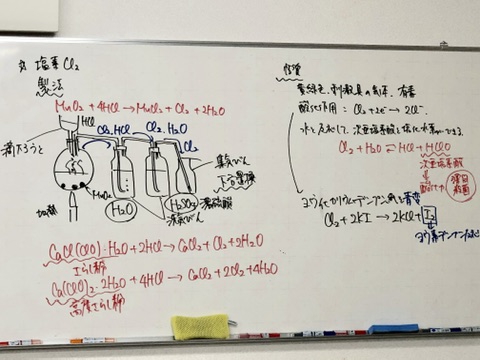 塩素 Cl₂
製法
MnO₂ + 4HCl → MnCl₂ + Cl₂ + 2H₂O
HCl
Cl₂, HCl
Cl₂, H₂O
Cl₂
滴下ろうと
MnO₂
加熱
H₂O
H₂SO₄
濃硫酸
洗気びん
集気びん
下方置換
CaCl(ClO)・H₂O + 2HCl → CaCl₂ + Cl₂ + 2H₂O
さらし粉
Ca(ClO)₂・2H₂O + 4HCl → CaCl₂ + 2Cl₂ + 4H₂O
高度さらし粉
性質
黄緑色、刺激臭の気体、有毒
酸化作用: Cl₂ + 2e⁻ → 2Cl⁻
水と反応して、次亜塩素酸と塩化水素ができる
Cl₂ + H₂O ⇄ HCl + HClO
次亜塩素酸
漂白
殺菌
ヨウ化カリウムデンプン紙を青変
Cl₂ + 2KI → 2KCl + I₂
ヨウ素デンプン反応